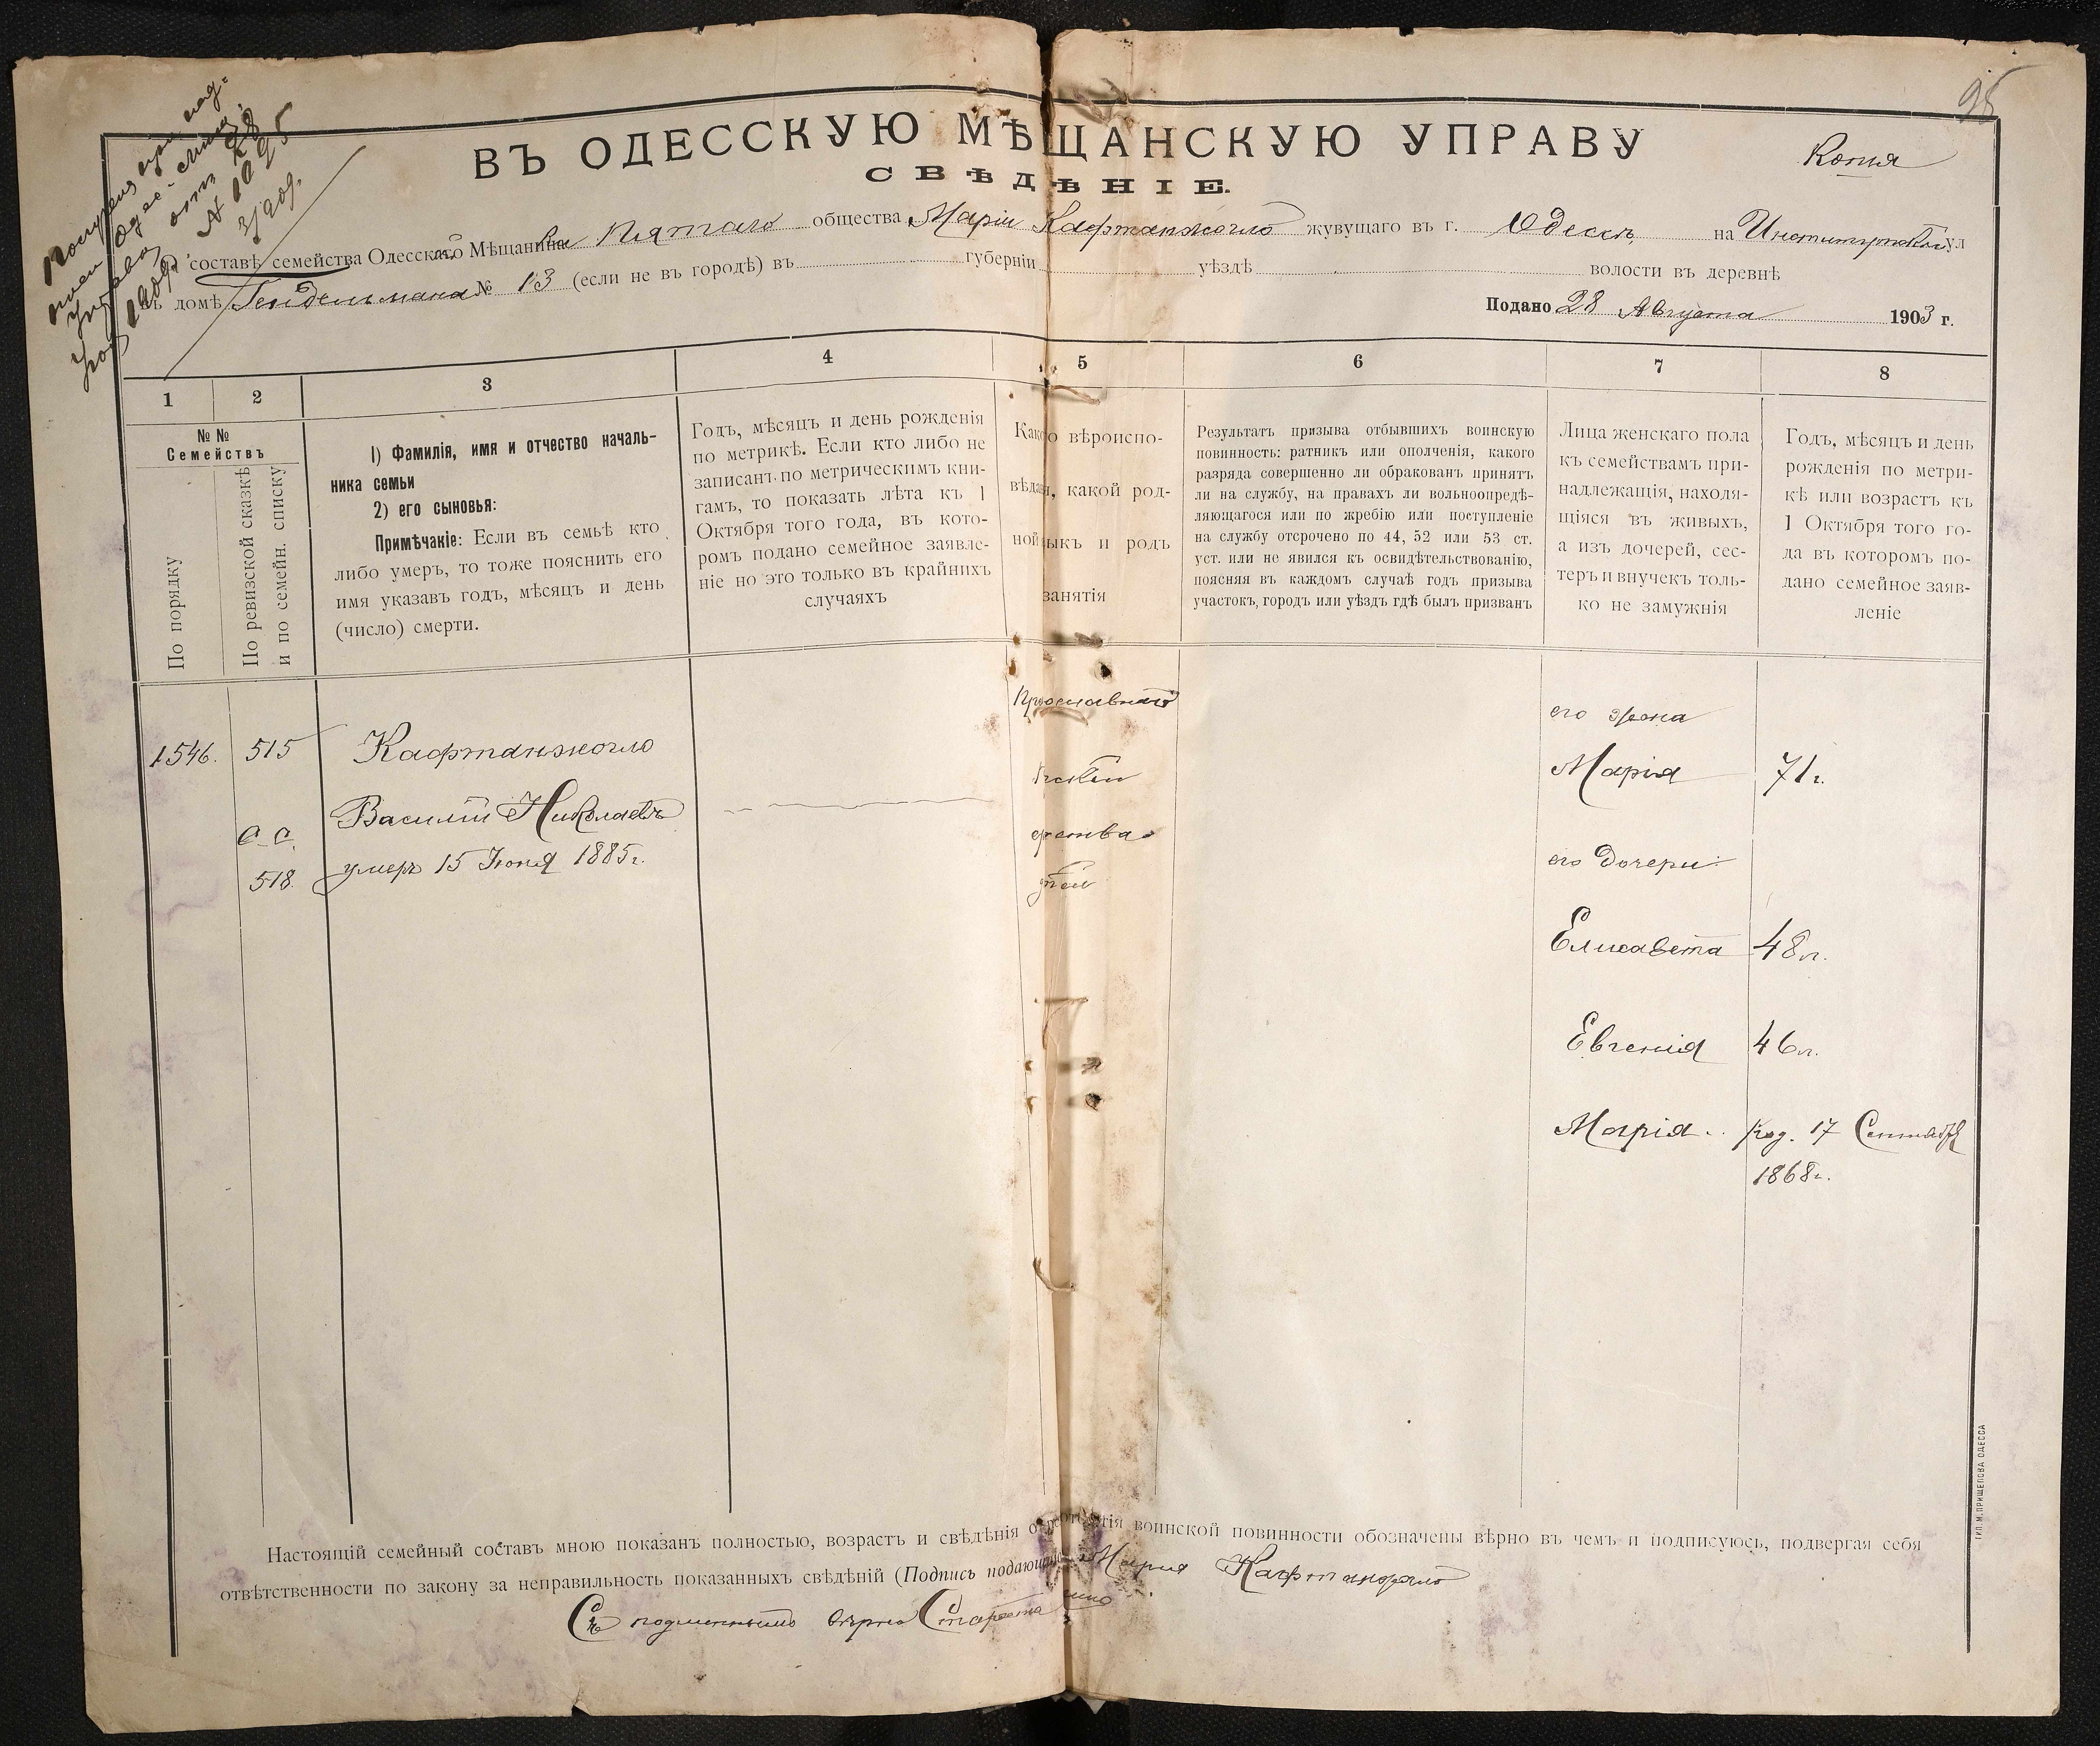 95
Копія
ВЪ ОДЕССКУЮ МѢЩАНСКУЮ УПРАВУ
СВѢДѢНІЕ.
составѣ семейства Одесской Мѣщанки Пятаго общества Маріи Кафтанжогло жувущаго въ г. Одессѣ, на Институтской ул
въ домѣ Гендельмана № 13 (если не въ городѣ) въ губерніи уѣздѣ волости въ деревнѣ
Подано 28 Августа 1903 г.
1 2 3 4 5 6 7 8
№№
Семействъ
По порядку
По ревизской сказкѣ
и по семейн. списку
1) Фамилія, имя и отчество началь-
ника семьи
2) его сыновья:
Примѣчакіе: Если въ семьѣ кто
либо умеръ, то тоже пояснить его
имя указавъ годъ, мѣсяцъ и день
(число) смерти.
Годъ, мѣсяцъ и день рожденія
по метрикѣ. Если кто либо не
записанъ по метрическимъ кни-
гамъ, то показать лѣта къ 1
Октября того года, въ кото-
ромъ подано семейное заявле-
ніе но это только въ крайнихъ
случаяхъ
Какого вѣроиспо-
вѣданія, какой род-
ной языкъ и родъ
занятія
Результатъ призыва отбывшихъ воинскую
повинность: ратникъ или ополченія, какого
разряда совершенно ли обракованъ принятъ
ли на службу, на правахъ ли вольноопредѣ-
ляющагося или по жребію или поступленіе
на службу отсрочено по 44, 52 или 53 ст.
уст. или не явился къ освидѣтельствованію,
поясняя въ каждомъ случаѣ годъ призыва
участокъ, городъ или уѣздъ гдѣ былъ призванъ
Лица женскаго пола
къ семействамъ при-
надлежащія, находя-
щіяся въ живыхъ,
а изъ дочерей, сес-
теръ и внучекъ толь-
ко не замужнія
Годъ, мѣсяцъ и день
рожденія по метри-
кѣ или возрастъ къ
1 Октября того го-
да въ которомъ по-
дано семейное заяв-
леніе
1546.
515
с. с.
518.
Кафтанжогло
Василій Николаевъ
умеръ 15 Іюня 1885 г.
его жена
Марія 71 г.
его дочери:
Елисавета 48 л.
Евгенія 46 л.
Марія. Род. 17 Сентября
1868 г.
Настоящій семейный составъ мною показанъ полностью, возрастъ и свѣдѣнія воинской повинности обозначены вѣрно въ чемъ и подписуюсь, подвергая себя
отвѣтственности по закону за неправильность показанныхъ свѣдѣній (Подпись подающаго Марія Кафтанжогло
Съ подлиннымъ вѣрно Староста
ТИП. М. ПРИЩЕПОВА ОДЕССА